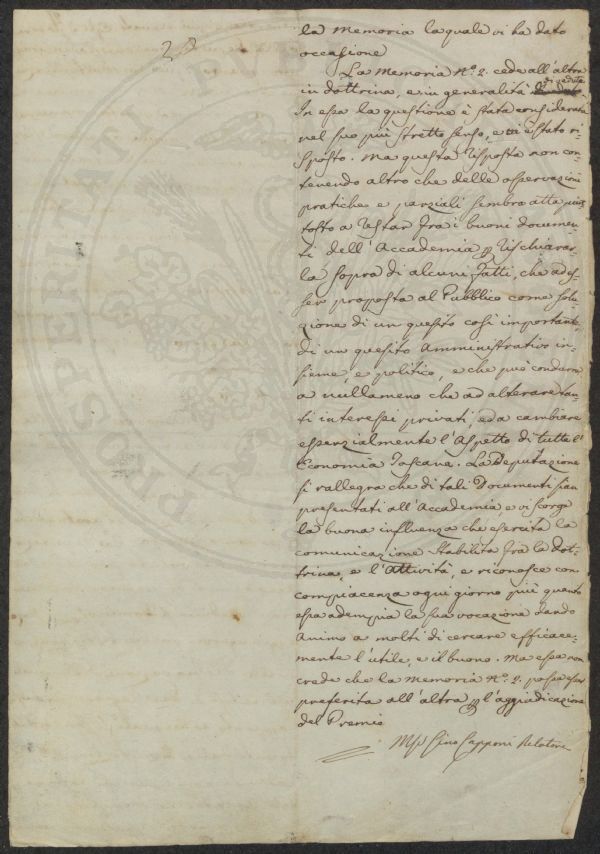 la Memoria la quale vi ha dato
occasione
La Memoria N.º 2. cede all'altra
in dottrina, e in generalità di vedute
In essa la questione è stata considerata
nel suo più stretto senso, e vi è stato ri-
sposto. Ma questa risposta non con-
tenendo altro che delle osservazioni
pratiche e parziali sembra atta piut
tosto a restar fra i buoni documen
ti dell'Accademia p rischiarar-
la sopra di alcuni fatti, che ad es-
ser proposta al Pubblico come solu
zione di un quesito così importante,
di un quesito Amministrativo in-
sieme, e politico, e che può condurre
a nullameno che ad alterare tan-
ti interessi privati, ed a cambiare
essenzialmente l'Aspetto di tutta l'
Economia Toscana. La Deputazione
si rallegra che di tali Documenti sian
presentati all'Accademia, e vi scorge
la buona influenza che esercita la
comunicazione stabilita fra la dot-
trina, e l'Attività, e riconosce con
compiacenza ogni giorno più quanto
essa adempia la sua vocazione dando
Animo a molti di cercare efficace-
mente l'utile, e il buono. Ma essa non
crede che la Memoria N.º 2. possa esser
preferita all'altra p l'aggiudicazione
del Premio
Gino Capponi Relatore
PROSPERITAS